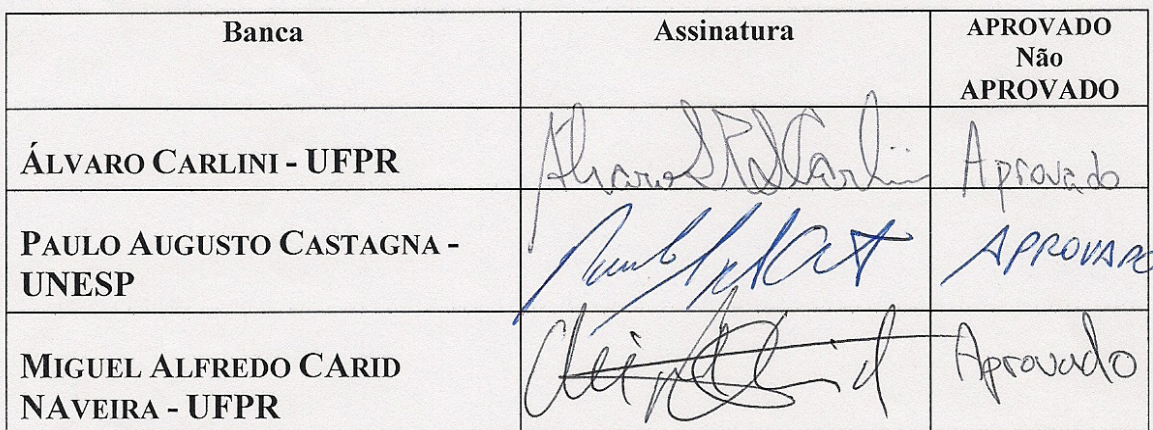 Banca
Assinatura
APROVADO
Não
APROVADO
ÁLVARO CARLINI - UFPR
Aprovado
PAULO AUGUSTO CASTAGNA -
UNESP
APROVADO
MIGUEL ALFREDO CARID
NAVEIRA - UFPR
Aprovado